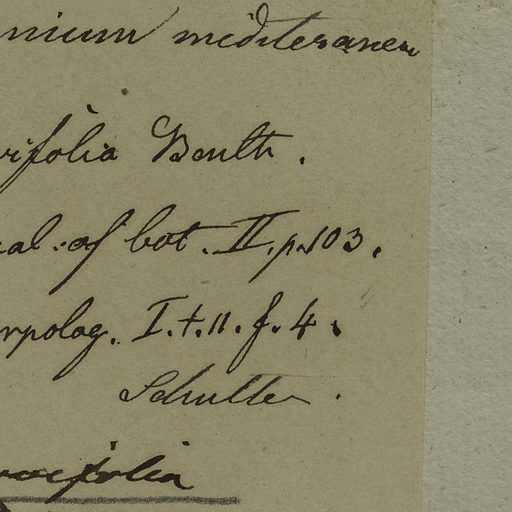 nium mediteranea
rifolia Benth.
nal. of bot. II. p. 103.
rpolog. I. t. 11. f. 4.
Schulte
ifolia